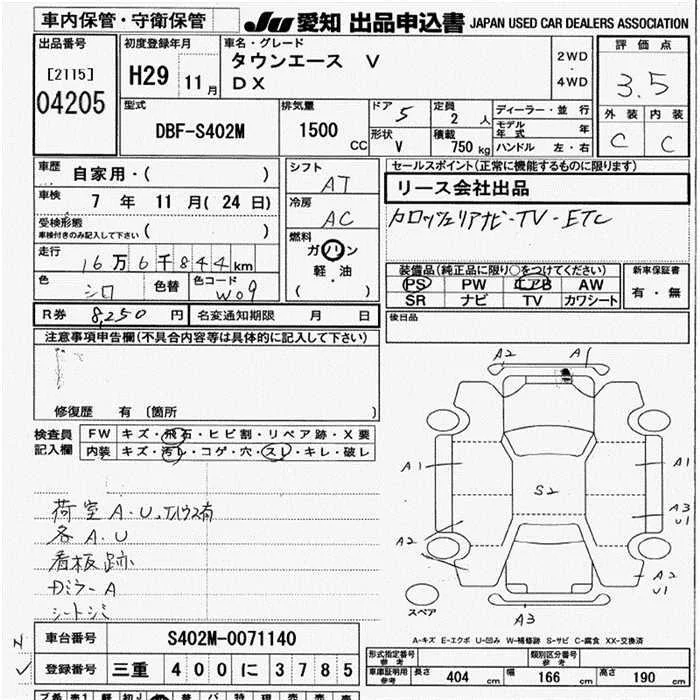 車内保管・守衛保管
JU 愛知 出品申込書 JAPAN USED CAR DEALERS ASSOCIATION
出品番号
[2115]
04205
初度登録年月
H29 11月
車名・グレード
タウンエース V
DX
2WD
・
4WD
評価点
3.5
外装 内装
C C
型式
DBF-S402M
排気量
1500 CC
ドア 5
形状 V
定員 2 人
積載 750 kg
ディーラー・並 行
モデル年式 年
ハンドル 左・右
車歴
自家用・( )
車検
7 年 11 月 ( 24 日)
受検形態
車検付きのみ記入して下さい ( )
走行
16万6千844km
色 シロ 色替 色コード W09
シフト
AT
冷房
AC
燃料
ガソリン
軽・油
( )
セールスポイント(正常に機能するものに限ります)
リース会社出品
カロッツェリアナビ-TV-ETC
装備品(純正品に限り○をつけてください)
PS PW エアB AW
SR ナビ TV カワシート
新車保証書
有・無
後日品
R券 8,250 円 名変通知期限 月 日
注意事項申告欄(不具合内容等は具体的に記入して下さい)
修復歴 有 〔箇所 〕
検査員記入欄
FW キズ・飛石・ヒビ割・リペア跡・X要
内装 キズ・汚レ・コゲ・穴・スレ・キレ・破レ
荷室 A.U.
各 A.U
看板跡
ミラーA
シートシミ
A2 A1
A1 A1
S2
A3
U1
A2
A2
U1
A3
スペア
A-キズ E-エクボ U-凹み W-補修跡 S-サビ C-腐食 XX-交換済
車台番号 S402M-0071140
登録番号 三重 400 に 3785
形式指定番号 参考
類別区分番号 参考
車庫証明用 参考 長さ 404 cm 幅 166 cm 高さ 190 cm